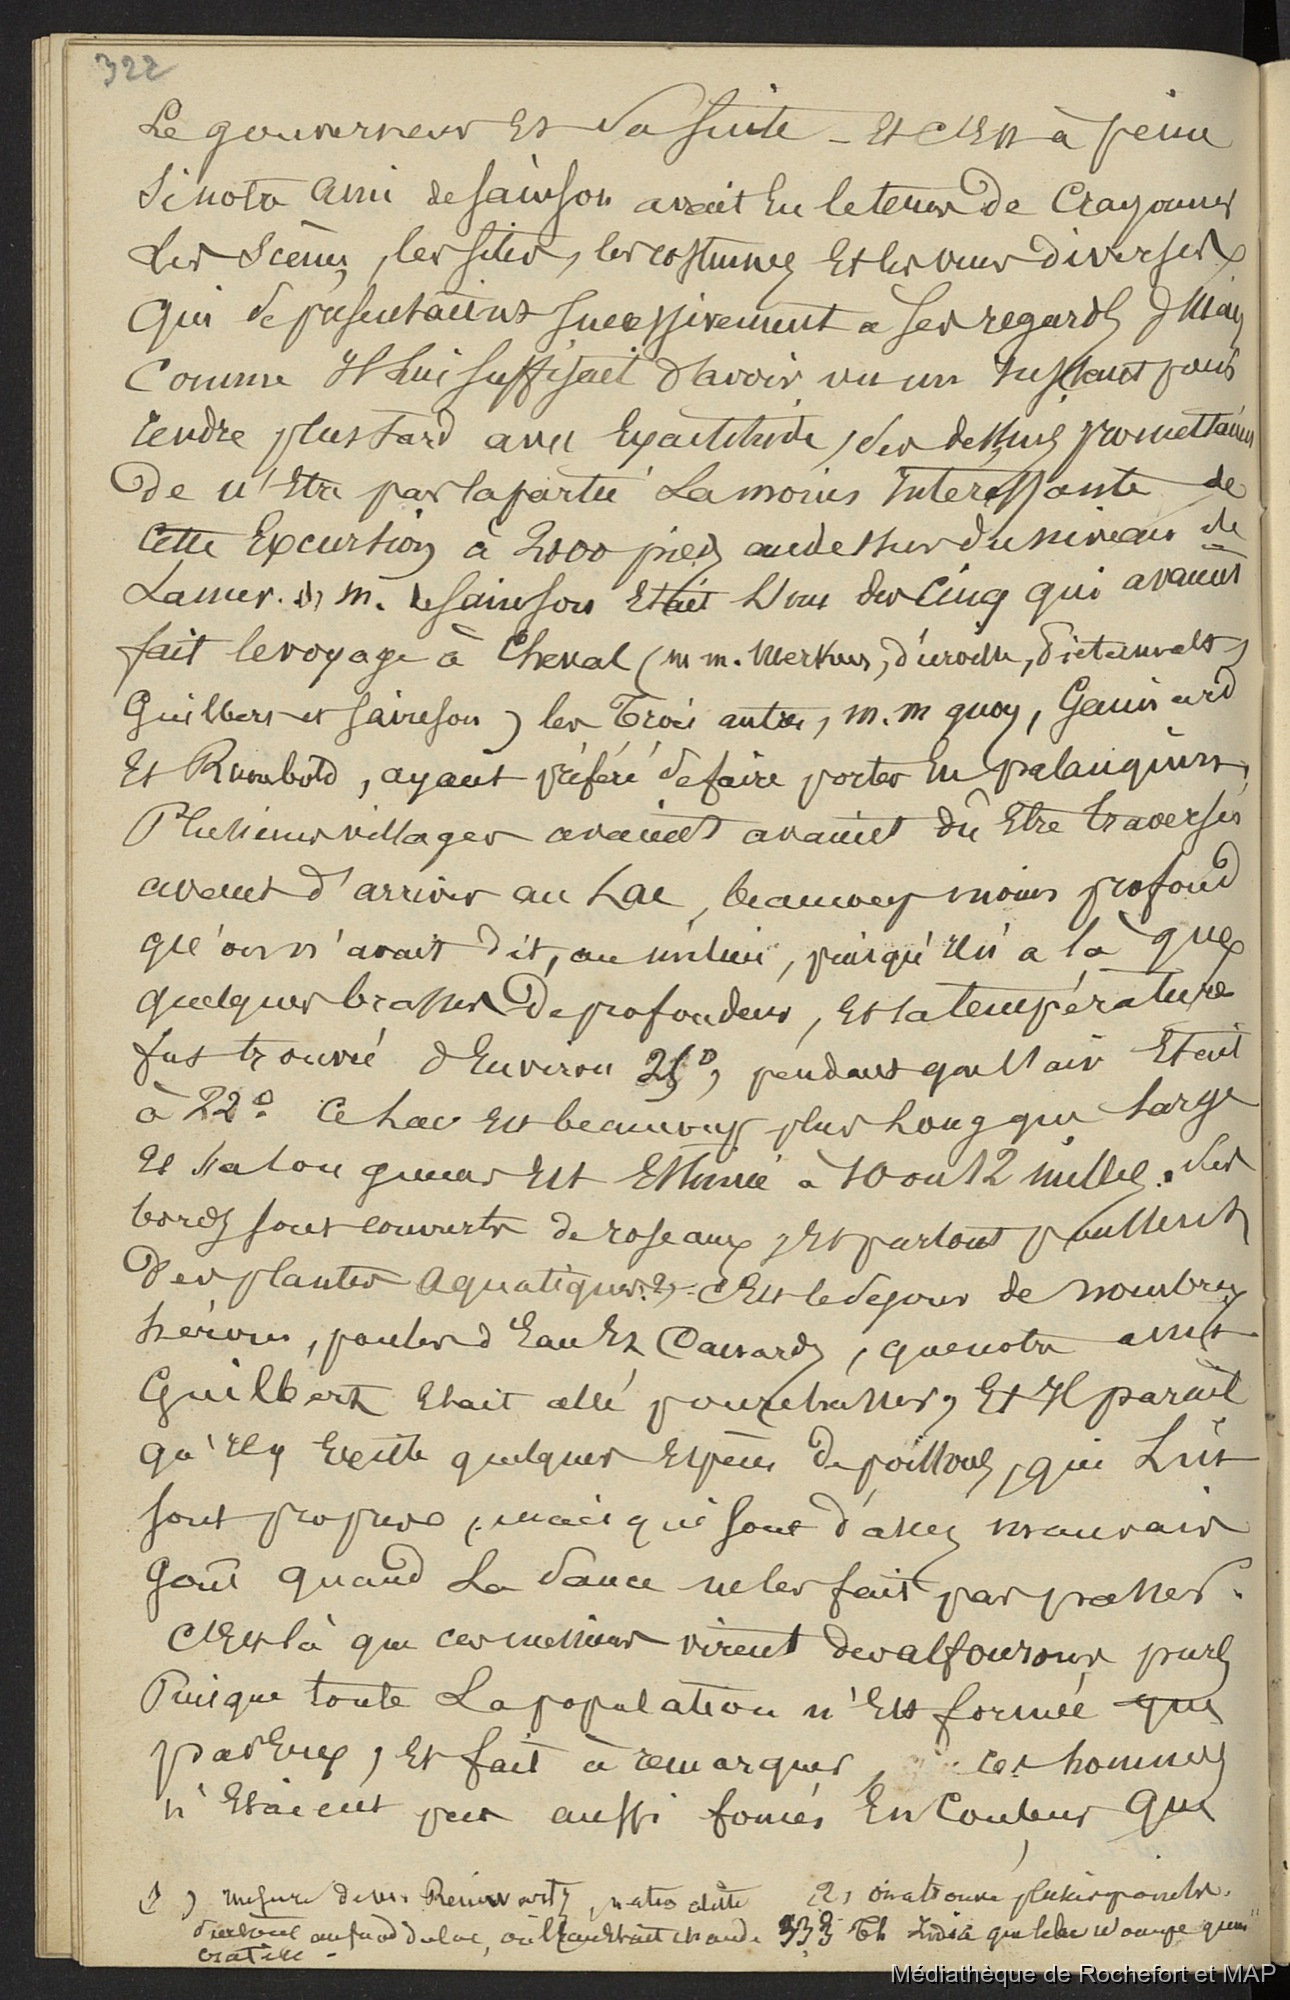 322
Le gouverneur Et Sa suite - Et c'Est à peine
Si notre Ami de sainson avait Eu le tems de Crayonner
des Scènes, les sites, les costumes Et les vues diverses
Qui se présentaient successivement a ses regards, Mais
Comme Il Lui suffisait d'avoir vu un Instant pour
rendre plus tard avec Exactitude, ses dessins promettaient
De n'Etre pas la partie La moins Interessante de
Cette Excursion à 2000 pieds au dessus du niveau de
La mer. 1) M. de Sainson Etait L'un des Cinq qui avaient
fait le voyage à Cheval (m m. Merkus, d'urville,
Guilbert et sainson) les Trois autres, M. M quoy, Gaimard
Et Rumbold, ayant préféré se faire porter En palanquins,
Plusieurs villages avaient avaient dû Etre traversés
avant d'arriver au Lac, beaucoup moins profond
qu'on n'avait dit, au milieu, puisqu'Il n'a là que
quelques brasses De profondeur, Et la température
fut trouvée d'Environ 25°, pendant que l'air Etait
à 22° Ce Lac Est beaucoup plus Long que Large
Et Sa longueur Est Estimée à 10 ou 12 milles. Ses
bords sont couverts de roseaux, Et partout poussent
Des plantes Aquatiques. 2) - C'Est le séjour de nombreux
hérons, poules d'Eau Et Canards, que notre ami
Guilbert Etait allé pourchasser, Et Il paraît
qu'Il y Existe quelques Espèces De poissons, qui Lui
sont propres, mais qui sont d'assez mauvais
Goût quand La Sauce ne les fait pas passer.
C'Est là que ces messieurs virent des alfourous purs
Puisque toute La population n'Est formée que
par Eux, Et fait à remarquer, ces hommes
n'Etaient pas aussi foncés En Couleur Que
1) mesure de Mr Reinwardt,
au fond du lac, où l'Eau Etait chaude
2) on a trouvé plusieurs